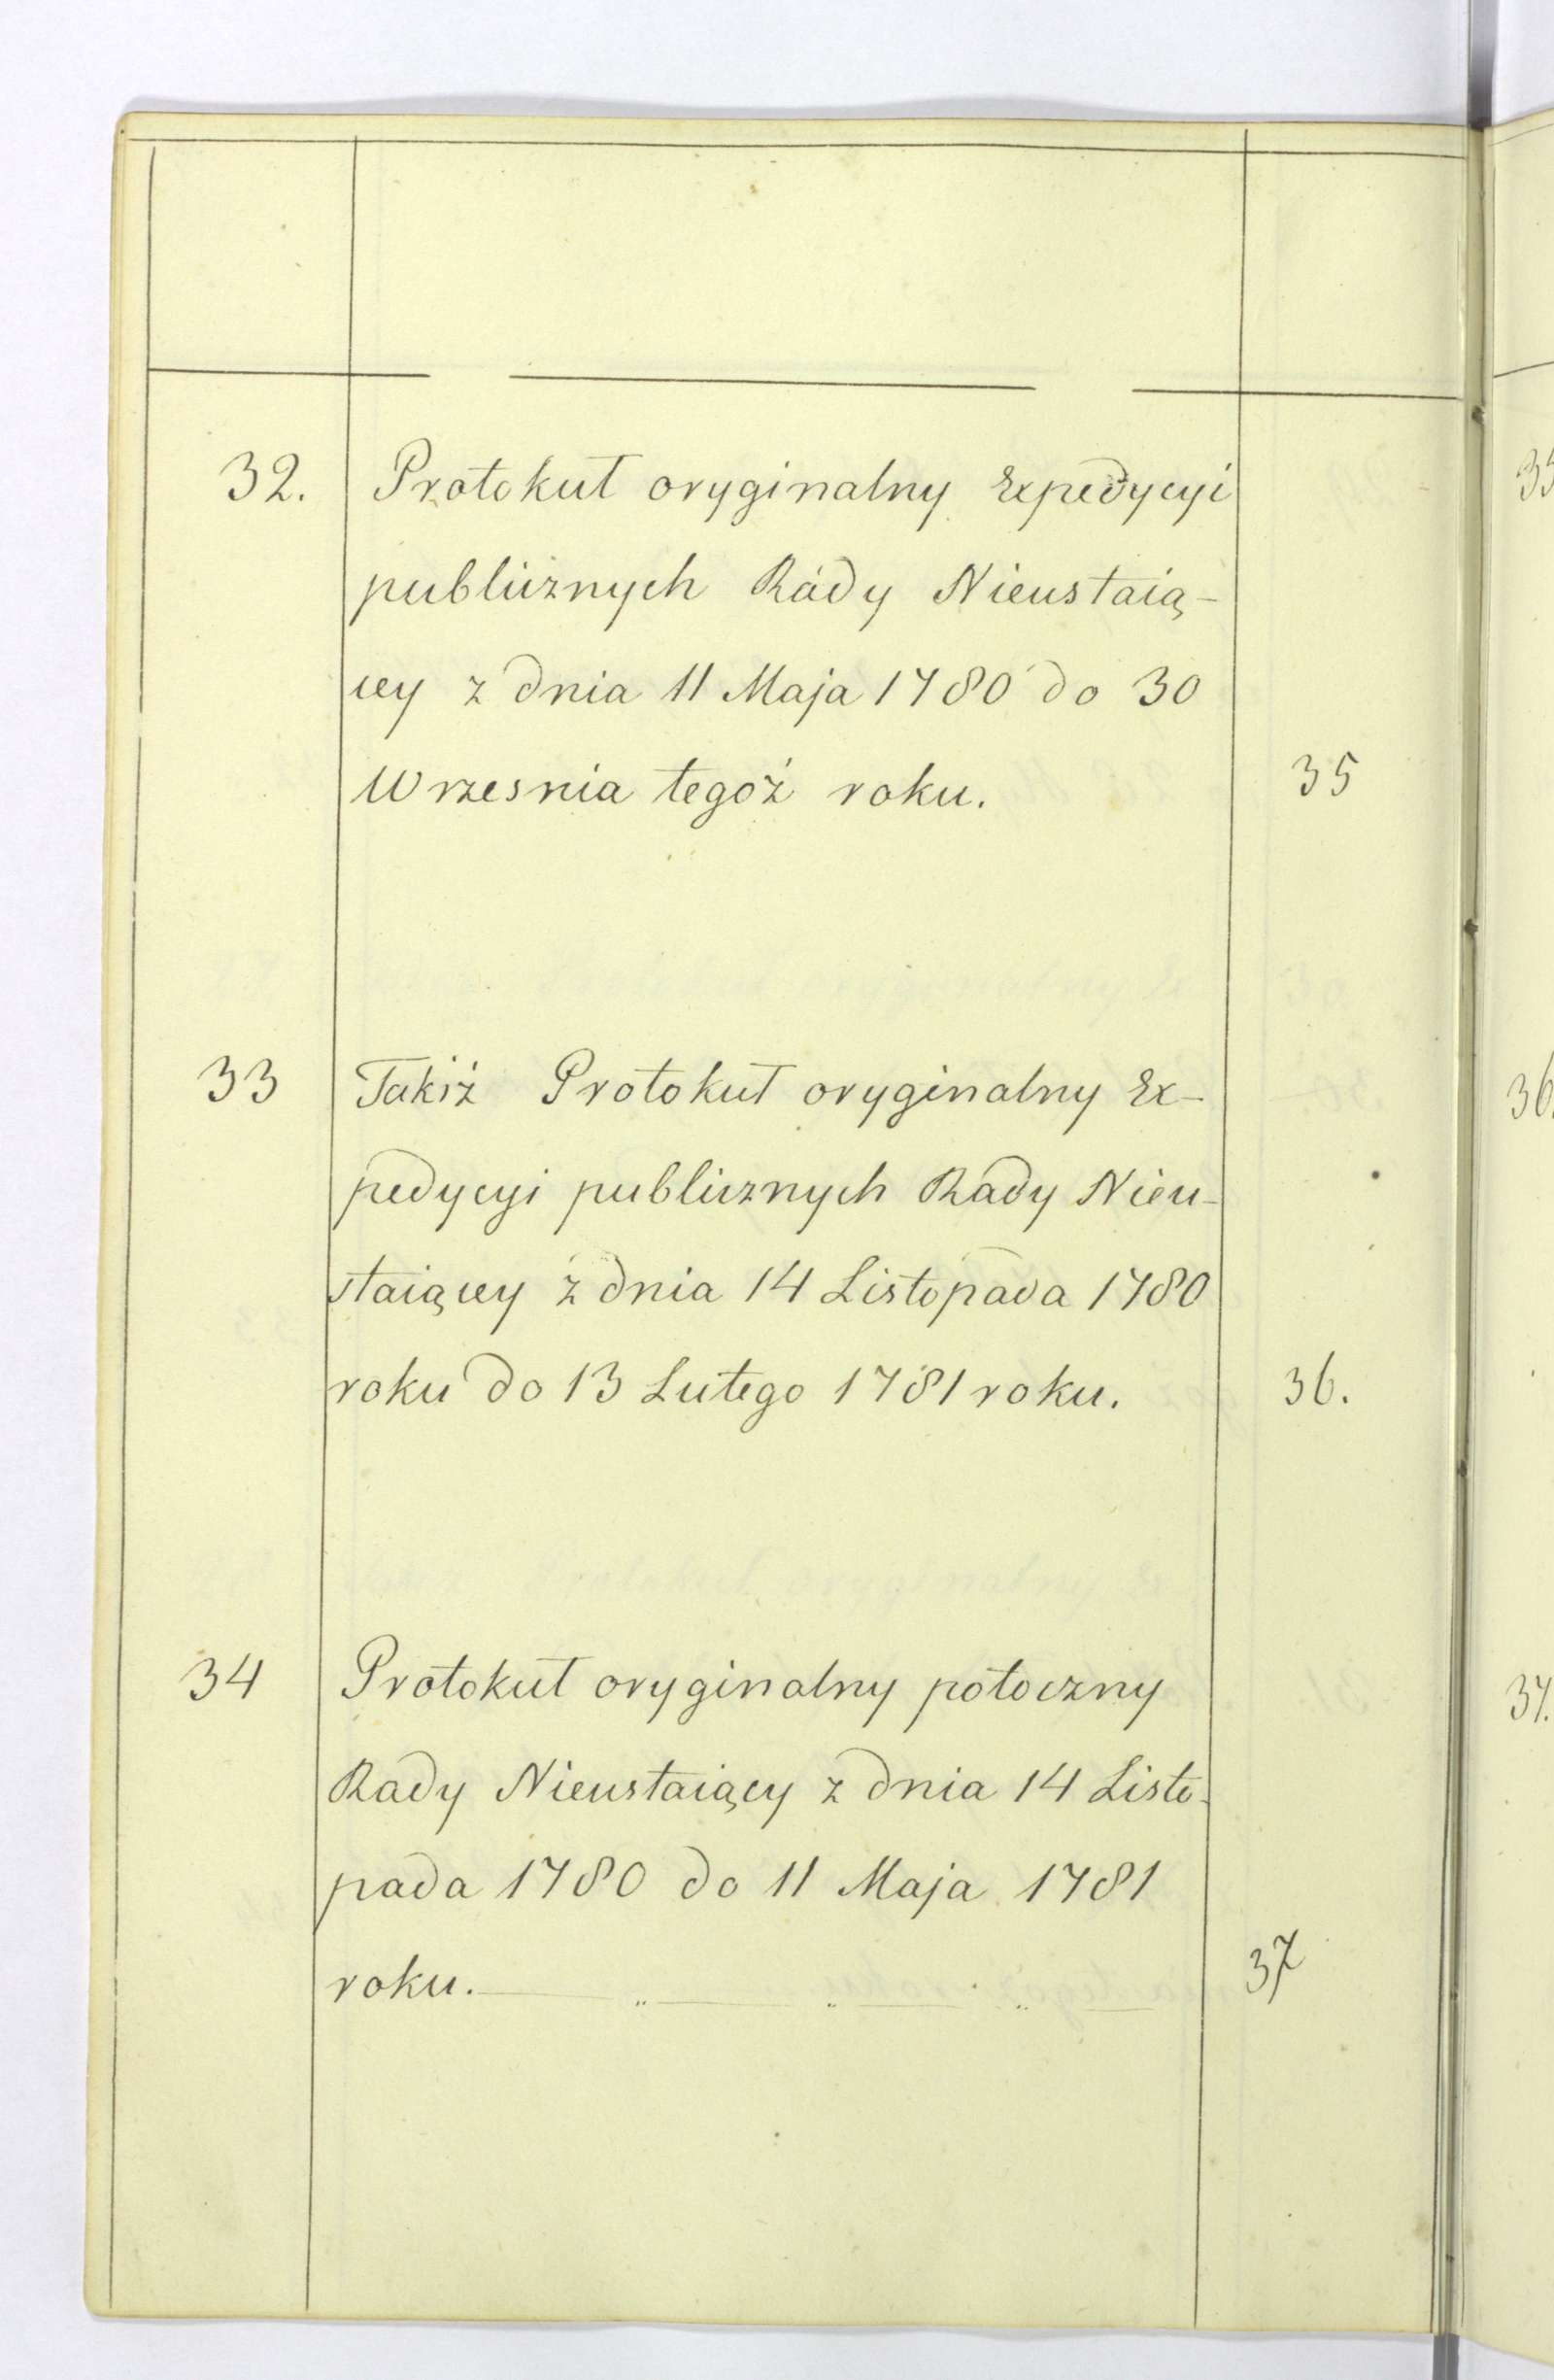 32. Protokuł oryginalny Expedycyi
publicznych Rady Nieustaią-
cey z dnia 11 Maja 1780 do 30
Wrzesnia tegoż roku. 35
33 Takiż Protokuł oryginalny Ex-
pedycyi publicznych Rady Nieu-
staiącey z dnia 14 Listopada 1780
roku do 13 Lutego 1781 roku. 36.
34 Protokuł oryginalny potoczny
Rady Nieustaiący z dnia 14 Listo-
pada 1780 do 11 Maja 1781
roku. 37
35
36.
37.